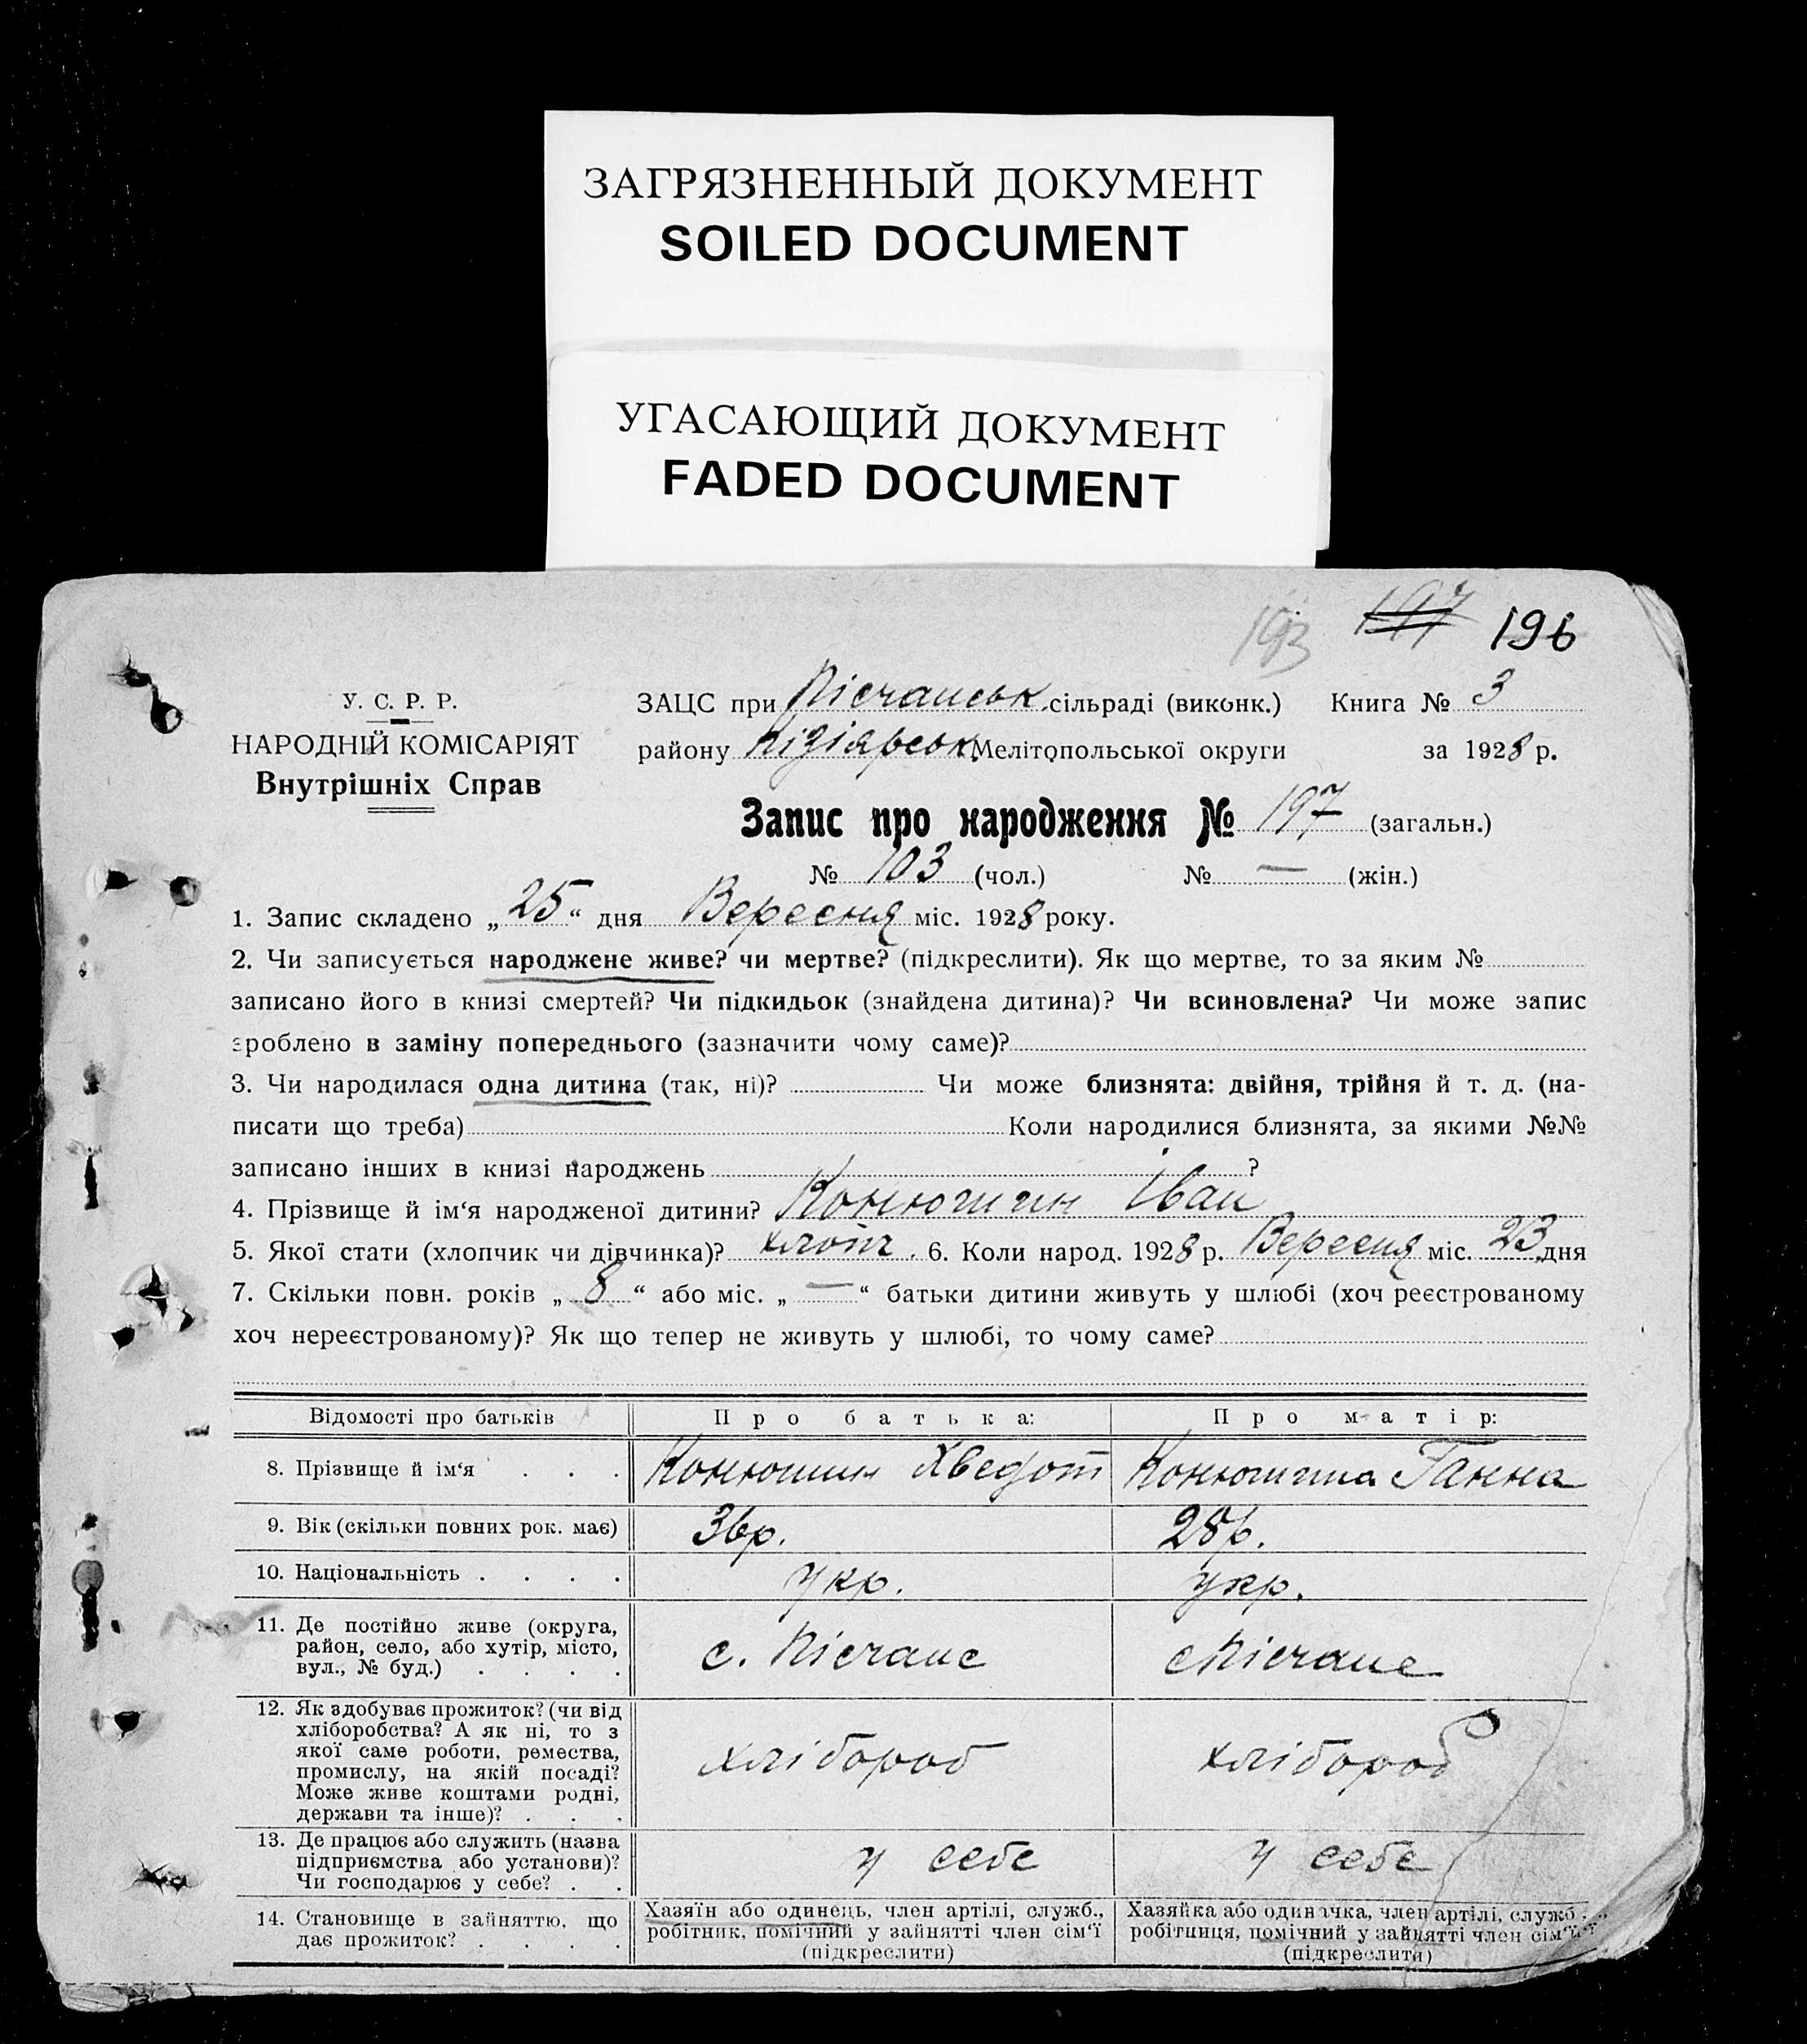 ЗАГРЯЗНЕННЫЙ ДОКУМЕНТ
SOILED DOCUMENT
УГАСАЮЩИЙ ДОКУМЕНТ
FADED DOCUMENT
193 197 196
У. С. Р. Р.
НАРОДНІЙ КОМІСАРІЯТ
Внутрішніх Справ
ЗАЦС при Пісчанськ. сільраді (виконк.) Книга № 3
району Кізіярськ. Мелітопольської округи за 1928 р.
Запис про народження № 197 (загальн.)
№ 103 (чол.) № — (жін.)
1. Запис складено „ 25 “ дня Вересня міс. 1928 року.
2. Чи записується народжене живе? чи мертве? (підкреслити). Як що мертве, то за яким №
записано його в книзі смертей? Чи підкидьок (знайдена дитина)? Чи всиновлена? Чи може запис
зроблено в заміну попереднього (зазначити чому саме)?
3. Чи народилася одна дитина (так, ні)? Чи може близнята: двійня, трійня й т. д. (на-
писати що треба) Коли народилися близнята, за якими №№
записано інших в книзі народжень ?
4. Прізвище й ім‘я народженої дитини? Конюшин Іван
5. Якої стати (хлопчик чи дівчинка)? хлопч. 6. Коли народ. 1928 р. Вересня міс. 23 дня
7. Скільки повн. років „ 8 “ або міс. „ — “ батьки дитини живуть у шлюбі (хоч реєстрованому
хоч нереєстрованому)? Як що тепер не живуть у шлюбі, то чому саме?
Відомості про батьків Про батька: Про матір:
8. Прізвище й ім‘я . . . Конюшин Хведот Конюшина Ганна
9. Вік (скільки повних рок. має) 36р. 28р.
10. Національність . . . . укр. укр.
11. Де постійно живе (округа,
район, село, або хутір, місто,
вул., № буд.) . . . .
с. Пісчане с Пісчане
12. Як здобуває прожиток? (чи від
хліборобства? А як ні, то з
якої саме роботи, ремества,
промислу, на якій посаді?
Може живе коштами родні,
держави та інше)? . . .
хлібороб хлібороб
13. Де працює або служить (назва
підприємства або установи)?
Чи господарює у себе? . .
у себе у себе
14. Становище в зайняттю, що
дає прожиток? . . . .
Хазяїн або одинець, член артілі, служб.,
робітник, помічний у зайнятті член сім‘ї
(підкреслити)
Хазяйка або одиначка, член артілі, служб.,
робітниця, помічний у зайнятті член сім‘ї
(підкреслити)